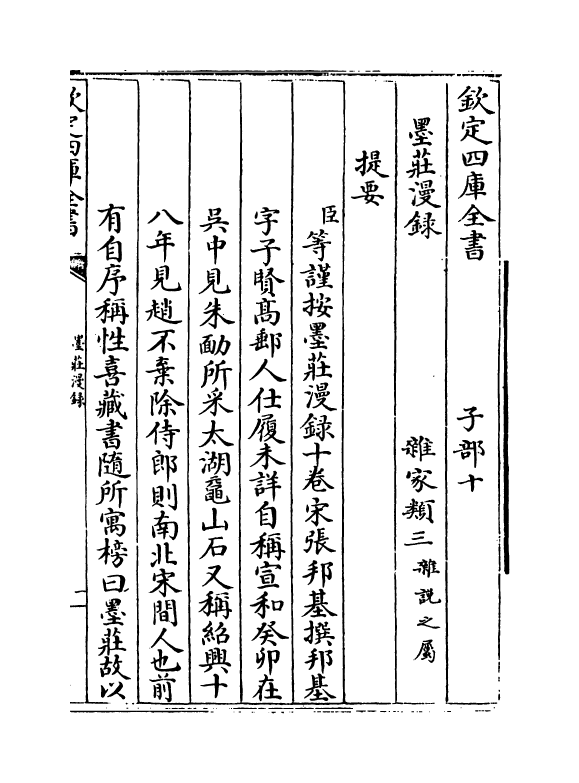 欽定四庫全書　子部十
墨莊漫録　雜家類三雜説之屬
提要
臣等謹按墨莊漫録十卷宋張邦基撰邦基
字子賢髙郵人仕履未詳自稱宣和癸卯在
吳中見朱勔所采太湖黿山石又稱紹興十
八年見趙不棄除侍郎則南北宋間人也前
有自序稱性喜藏書隨所寓榜曰墨莊故以
欽定四庫全書　墨莊漫録